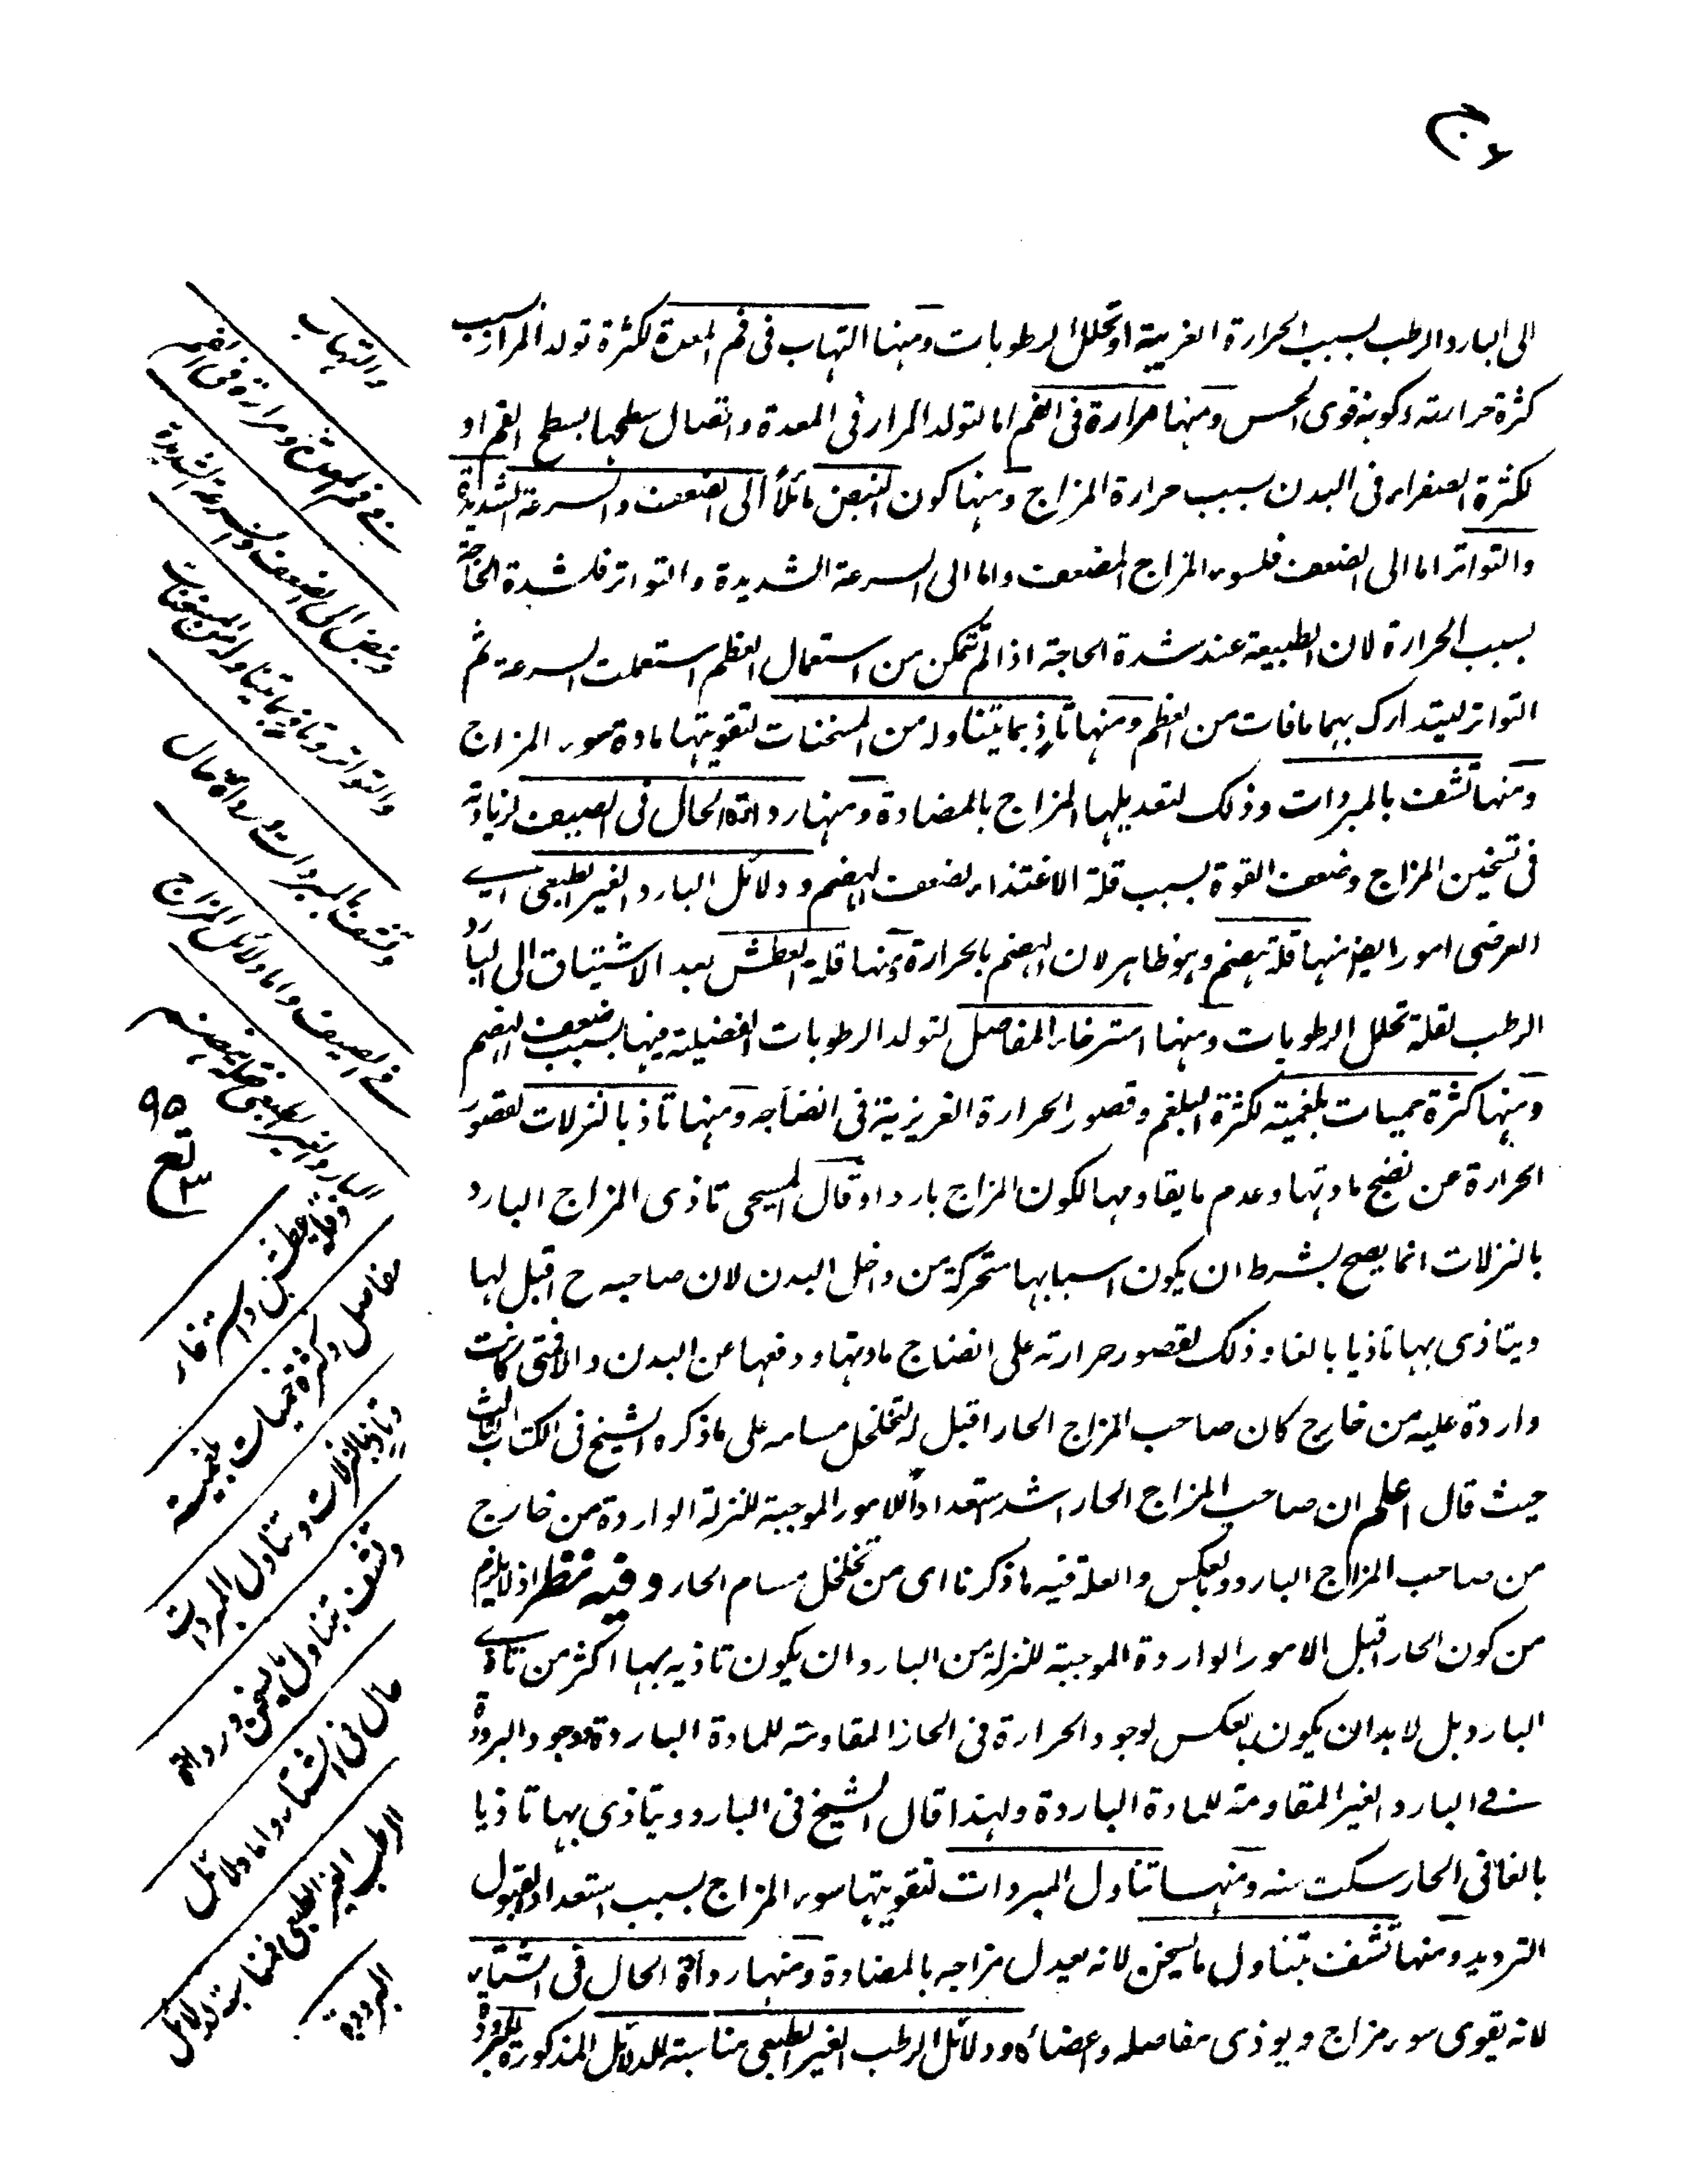 الى البارد الرطب بسبب الحرارة الغريبة او تحلل الرطوبات ومنها التهاب فى فم المعدة لكثرة تولد المرار بسبب
كثرة حرارته وكونه قوى الحس ومنها مرارة فى الفم اما لتولد المرار فى المعدة واتصال سطحها بسطح الفم او
لكثرة الصفراء فى البدن بسبب حرارة المزاج ومنها كون النبض مائلاً الى الضعف والسرعة الشديدة
والتواتر اما الى الضعف فلسوء المزاج المضعف واما الى السرعة الشديدة والتواتر فلشدة الحاجة
بسبب الحرارة لان الطبيعة عند شدة الحاجة اذا لم تتمكن من استعمال العظم استعملت السرعة ثم
التواتر ليتدارك بهما ما فات من العظم ومنها تاذٍ بما يتناوله من المسخنات لتقويتها مادة سوء المزاج
ومنها تشف بالمبردات وذلك لتعديلها المزاج بالمضادة ومنها رداءة الحال فى الصيف لزيادته
فى تسخين المزاج وضعف القوة بسبب قلة الاغتذاء لضعف الهضم ودلائل البارد الغير الطبيعى اے
العرضى امور ايضا منها قلة هضم وهو ظاهر لان الهضم بالحرارة ومنها قلة العطش لبعد الاشتياق الى البارد
الرطب لقلة تحلل الرطوبات ومنها استرخاء المفاصل لتولد الرطوبات الفضلية فيها بسبب ضعف الهضم
ومنها كثرة حميات بلغمية لكثرة البلغم وقصور الحرارة الغريزية فى انضاجه ومنها تاذ بالنزلات لقصور
الحرارة عن نضج مادتها وعدم ما يقاومها لكون المزاج باردا وقال المسيحى تاذى المزاج البارد
بالنزلات انما يصح بشرط ان يكون اسبابها متحركة من داخل البدن لان صاحبه ح اقبل لها
ويتاذى بها تاذيا بالغا وذلك لقصور حرارته على انضاج مادتها ودفعها عن البدن والا فمتى كانت
واردة عليه من خارج كان صاحب المزاج الحار اقبل له لتخلخل مسامه على ما ذكره الشيخ فى الكتاب الثالث
حيث قال اعلم ان صاحب المزاج الحار اشد استعدادا للامور الموجبة للنزلة الواردة من خارج
من صاحب المزاج البارد وبالعكس والعلة فيه ما ذكرنا اى من تخلخل مسام الحار وفيه نظر اذ لا يلزم
من كون الحار اقبل الامور الواردة الموجبة للنزلة من البارد ان يكون تاذيه بها اكثر من تاذى
البارد بل لا بد ان يكون بالعكس لوجود الحرارة فى الحار المقاومة للمادة الباردة ووجود البرودة
فے البارد الغير المقاومة للمادة الباردة ولهذا قال الشيخ فى البارد ويتاذى بها تاذيا
بالغا وفى الحار سكت منه ومنها تناول المبردات لتقويتها سوء المزاج بسبب استعداد القبول
التبريد ومنها تشف بتناول ما يسخن لانه يعدل مزاجه بالمضادة ومنها رداءة الحال فى الشتاء
لانه يقوى سوء مزاج ويوذى مفاصله واعضائه ودلائل الرطب الغير الطبيعى مناسبة للدلائل المذكورة للبرودة
والتهاب
فى فم المعدة ومرارة فى الفم
ونبض الى الضعف والسرعة الشديدة
والتواتر وتاذ بما يتناوله من المسخنات
وتشف بالمبردات ورداءة حال
فى الصيف واما دلائل المزاج
البارد الغير الطبيعى قلة هضم
٩٥
وقلة عطش واسترخاء
مفاصل وكثرة حميات بلغمية
وتاذ بالنزلات وتناول المبردات
وتشف بتناول ما يسخن ورداءة
حال فى الشتاء واما دلائل
الرطب الغير الطبيعى فمناسبة لدلائل
البرودة